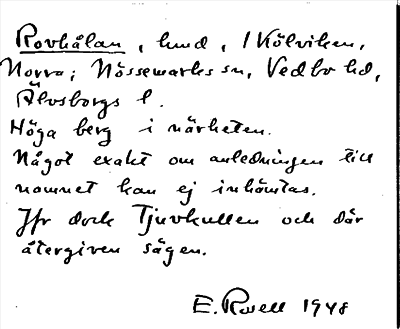 Rovhålan, lund, / Kölviken,
Norra; Nössemarks sn, Vedbo hd,
Älvsborgs l.
Höga berg i närheten.
Något exakt om anledningen till
namnet kan ej inhämtas.
Jfr dock Tjuvkullen och där
återgiven sägen.
E. Rosell 1948